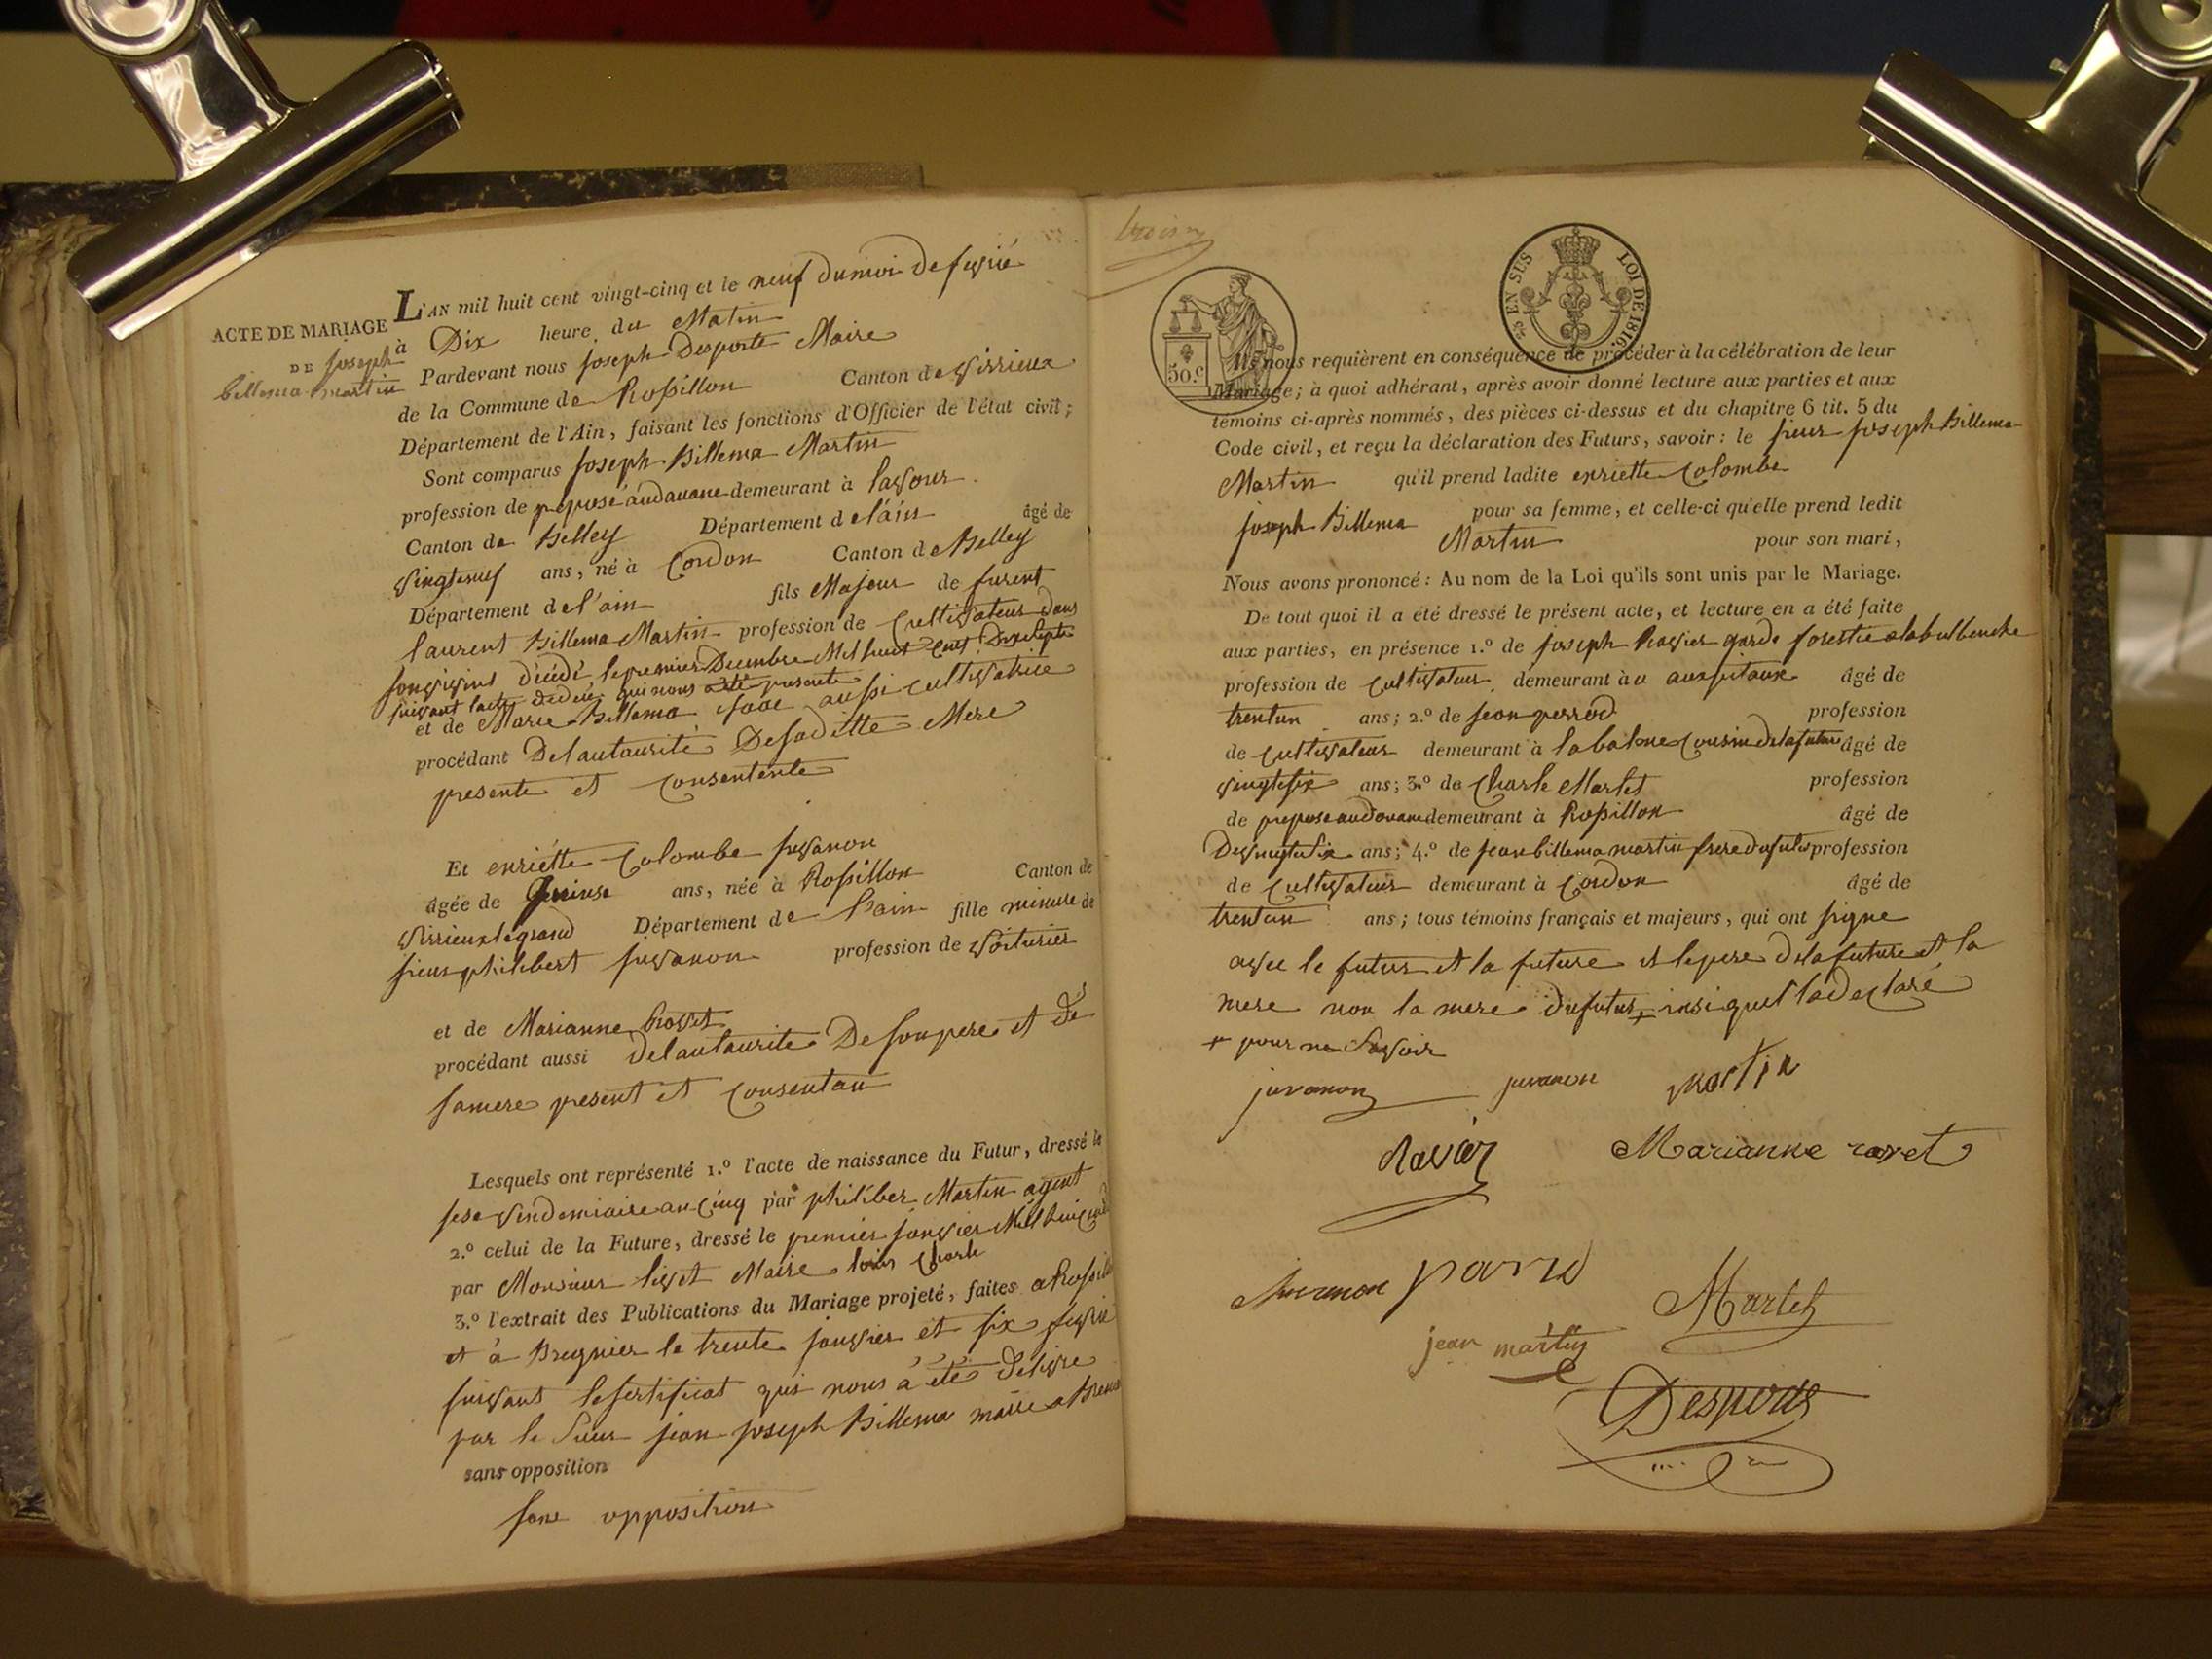 ACTE DE MARIAGE
DE joseph
billema martin
L'AN mil huit cent vingt-cinq et le neuf du moi de fevrié
à Dix heure du Matin
Pardevant nous joseph Desporte Maire
de la Commune de Rossillon Canton de virrieux
Département de l'Ain, faisant les fonctions d'Officier de l'état civil;
Sont comparus joseph Billema Martin
profession de preposé audauane demeurant à lavour
Canton de Belley Département de l'ain âgé de
vingtneuf ans, né à Cordon Canton de Belley
Département de l'ain fils Majour de furent
laurent Billema Martin profession de Cultivateur dans
sonvivins décédé le premier Decembre Mil huit Cent Dixsepte
suivant lacte dedeié qui nous a été presente
et de Marie Billema aussi cultivatrice
procédant De lautaurité De saditte Mere
presente et Consentente
Et enriétte Colombe juvanon
âgée de Quinse ans, née à Rossillon Canton de
virrieux le grand Département de l'ain fille mineure de
sieur philibert juvanon profession de voiturier
et de Marianne Crovet
procédant aussi de lautaurite De son pere et de
samere present et Consentan
Lesquels ont représenté 1.º l'acte de naissance du Futur, dressé le
sese vendemiaire an Cinq par philiber Martin agent
2.º celui de la Future, dressé le premier janvier Mil huit cent
par Monsieur livet Maire louis Charle
3.º l'extrait des Publications du Mariage projeté, faites a Rossillon
et à Bregnier le trente janvier et six fevrié
suivant lesertificat qui nous a été délivre
par le Sieur jean joseph Billema maire a
sans opposition
sans opposition
50.c
25 EN SUS LOI DE 1816.
Ils nous requièrent en conséquence de procéder à la célébration de leur
Mariage; à quoi adhérant, après avoir donné lecture aux parties et aux
témoins ci-après nommés, des pièces ci-dessus et du chapitre 6 tit. 5 du
Code civil, et reçu la déclaration des Futurs, savoir: le sieur joseph Billema
Martin qu'il prend ladite enriette Colombe
pour sa femme, et celle-ci qu'elle prend ledit
joseph Billema Martin pour son mari,
Nous avons prononcé: Au nom de la Loi qu'ils sont unis par le Mariage.
De tout quoi il a été dressé le présent acte, et lecture en a été faite
aux parties, en présence 1.º de joseph Ravier garde forestie
profession de Cultivateur demeurant à âgé de
trentun ans; 2.º de jean perrod profession
de Cultivateur demeurant à labalme Cousin de la future âgé de
vingtsix ans; 3.º de Charle Martet profession
de prepose audouane demeurant à Rossillon âgé de
Devingtsix ans; 4.º de jean billema martin frere du futur profession
de Cultivateur demeurant à Cordon âgé de
trentun ans; tous témoins français et majeurs, qui ont signe
avec le futur et la future et le pere de la future et la
mere non la mere du futur + insi quel la declaré
+ pour ne Savoir
juvanon juvanon martin
Ravier Marianne rovet
juvanon parrod
Martet
jean martin
Desporte